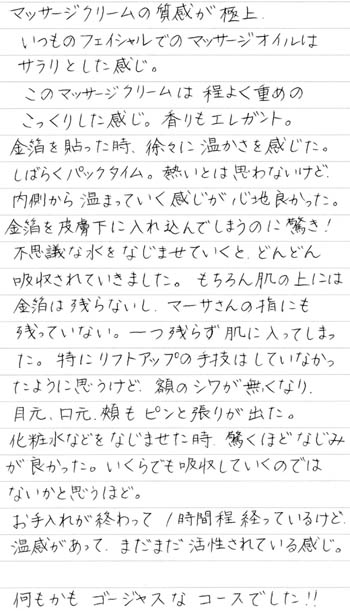 マッサージクリームの質感が極上.
いつものフェイシャルでのマッサージオイルは
サラリとした感じ。
このマッサージクリームは程よく重めの
こっくりした感じ。香りもエレガント。
金箔を貼った時、徐々に温かさを感じた。
しばらくパックタイム。熱いとは思わないけど、
内側から温まっていく感じが心地良かった。
金箔を皮膚下に入れ込んでしまうのに驚き!
不思議な水をなじませていくと、どんどん
吸収されていきました。もちろん肌の上には
金箔は残らないし、マーサさんの指にも
残っていない。一つ残らず肌に入ってしまっ
た。特にリフトアップの手技はしていなかっ
たように思うけど、額のシワが無くなり、
目元、口元、頬もピンと張りが出た。
化粧水などをなじませた時、驚くほどなじみ
が良かった。いくらでも吸収していくのでは
ないかと思うほど。
お手入れが終わって1時間程経っているけど、
温感があって、まだまだ活性されている感じ。
何もかもゴージャスなコースでした!!